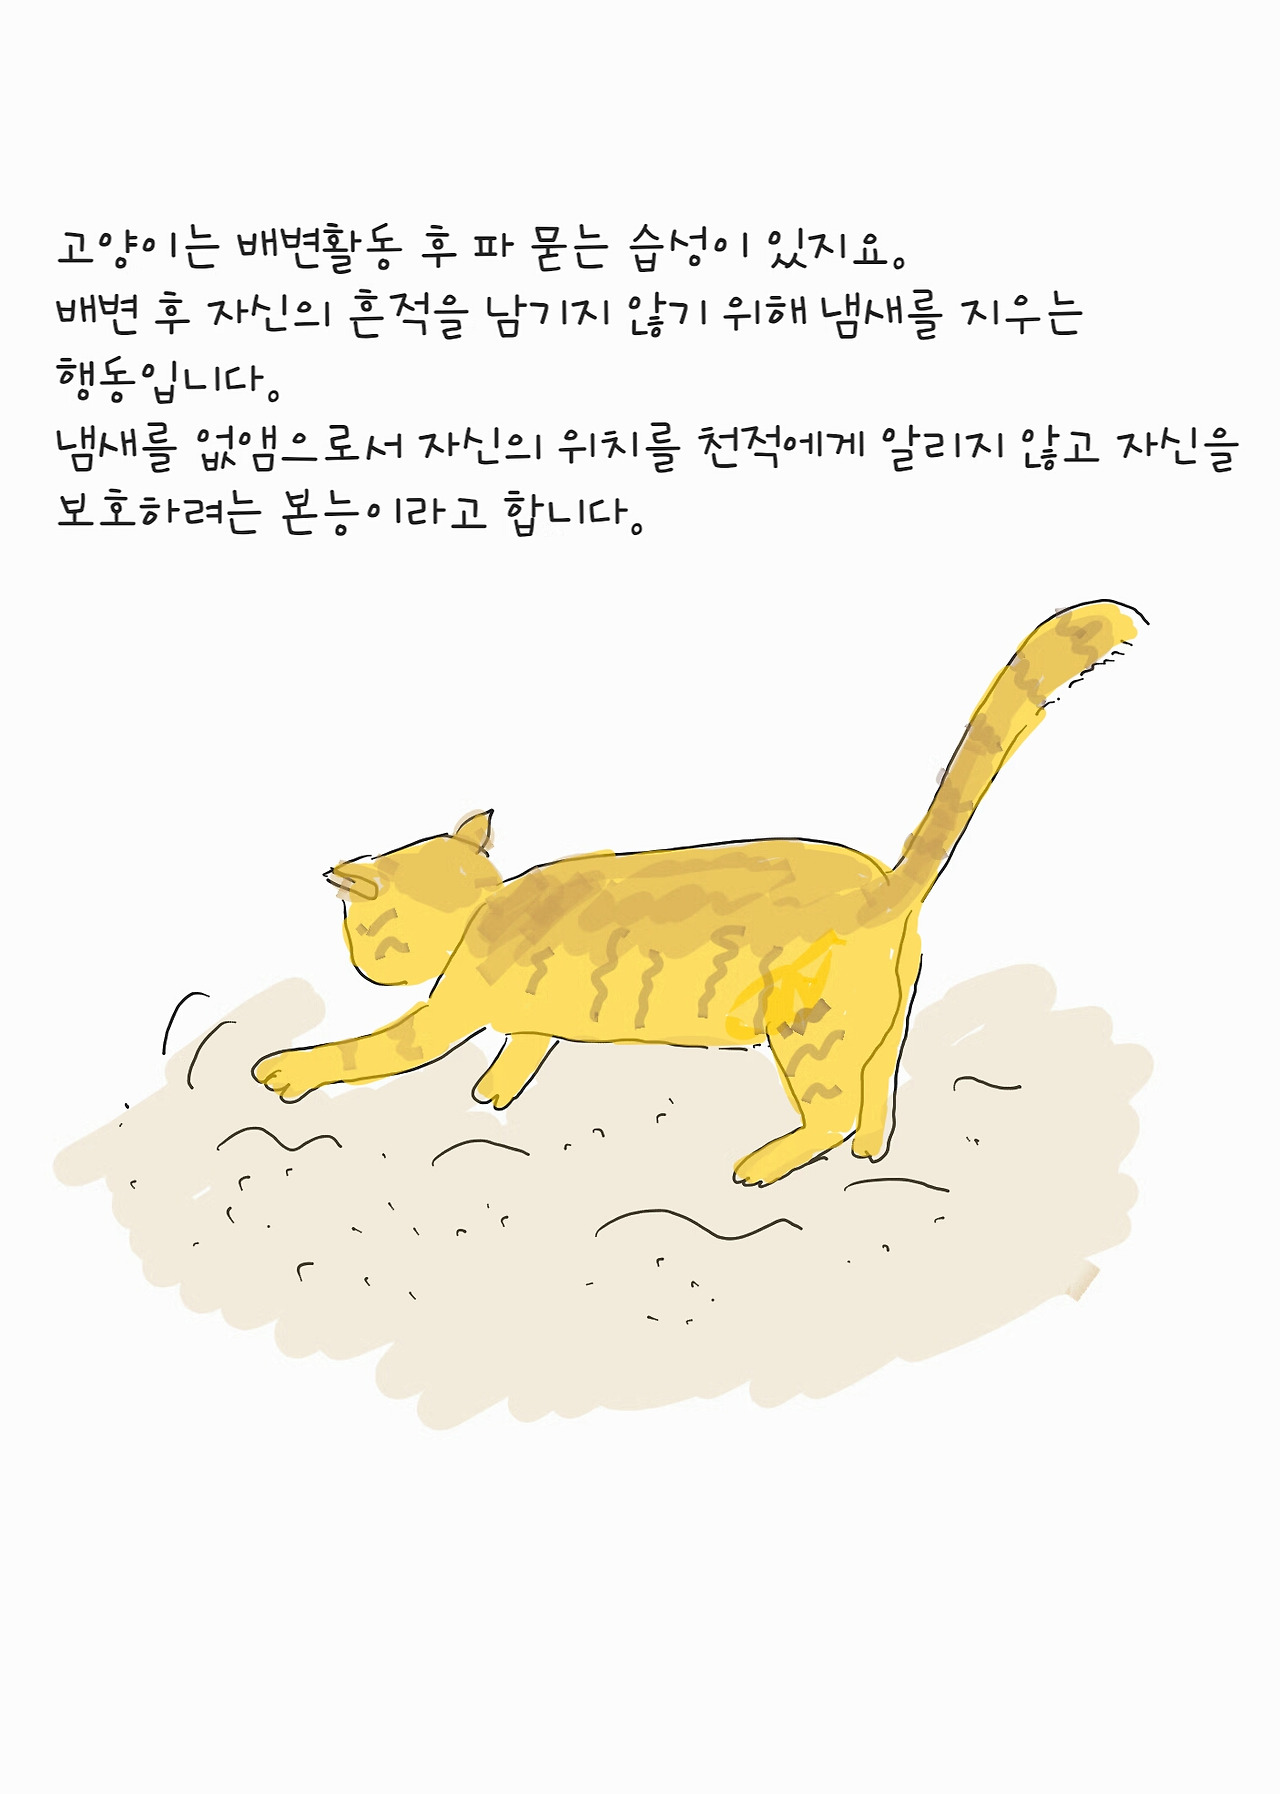 고양이는 배변활동 후 파 묻는 습성이 있지요.
배변 후 자신의 흔적을 남기지 않기 위해 냄새를 지우는
행동입니다.
냄새를 없앰으로서 자신의 위치를 천적에게 알리지 않고 자신을
보호하려는 본능이라고 합니다.